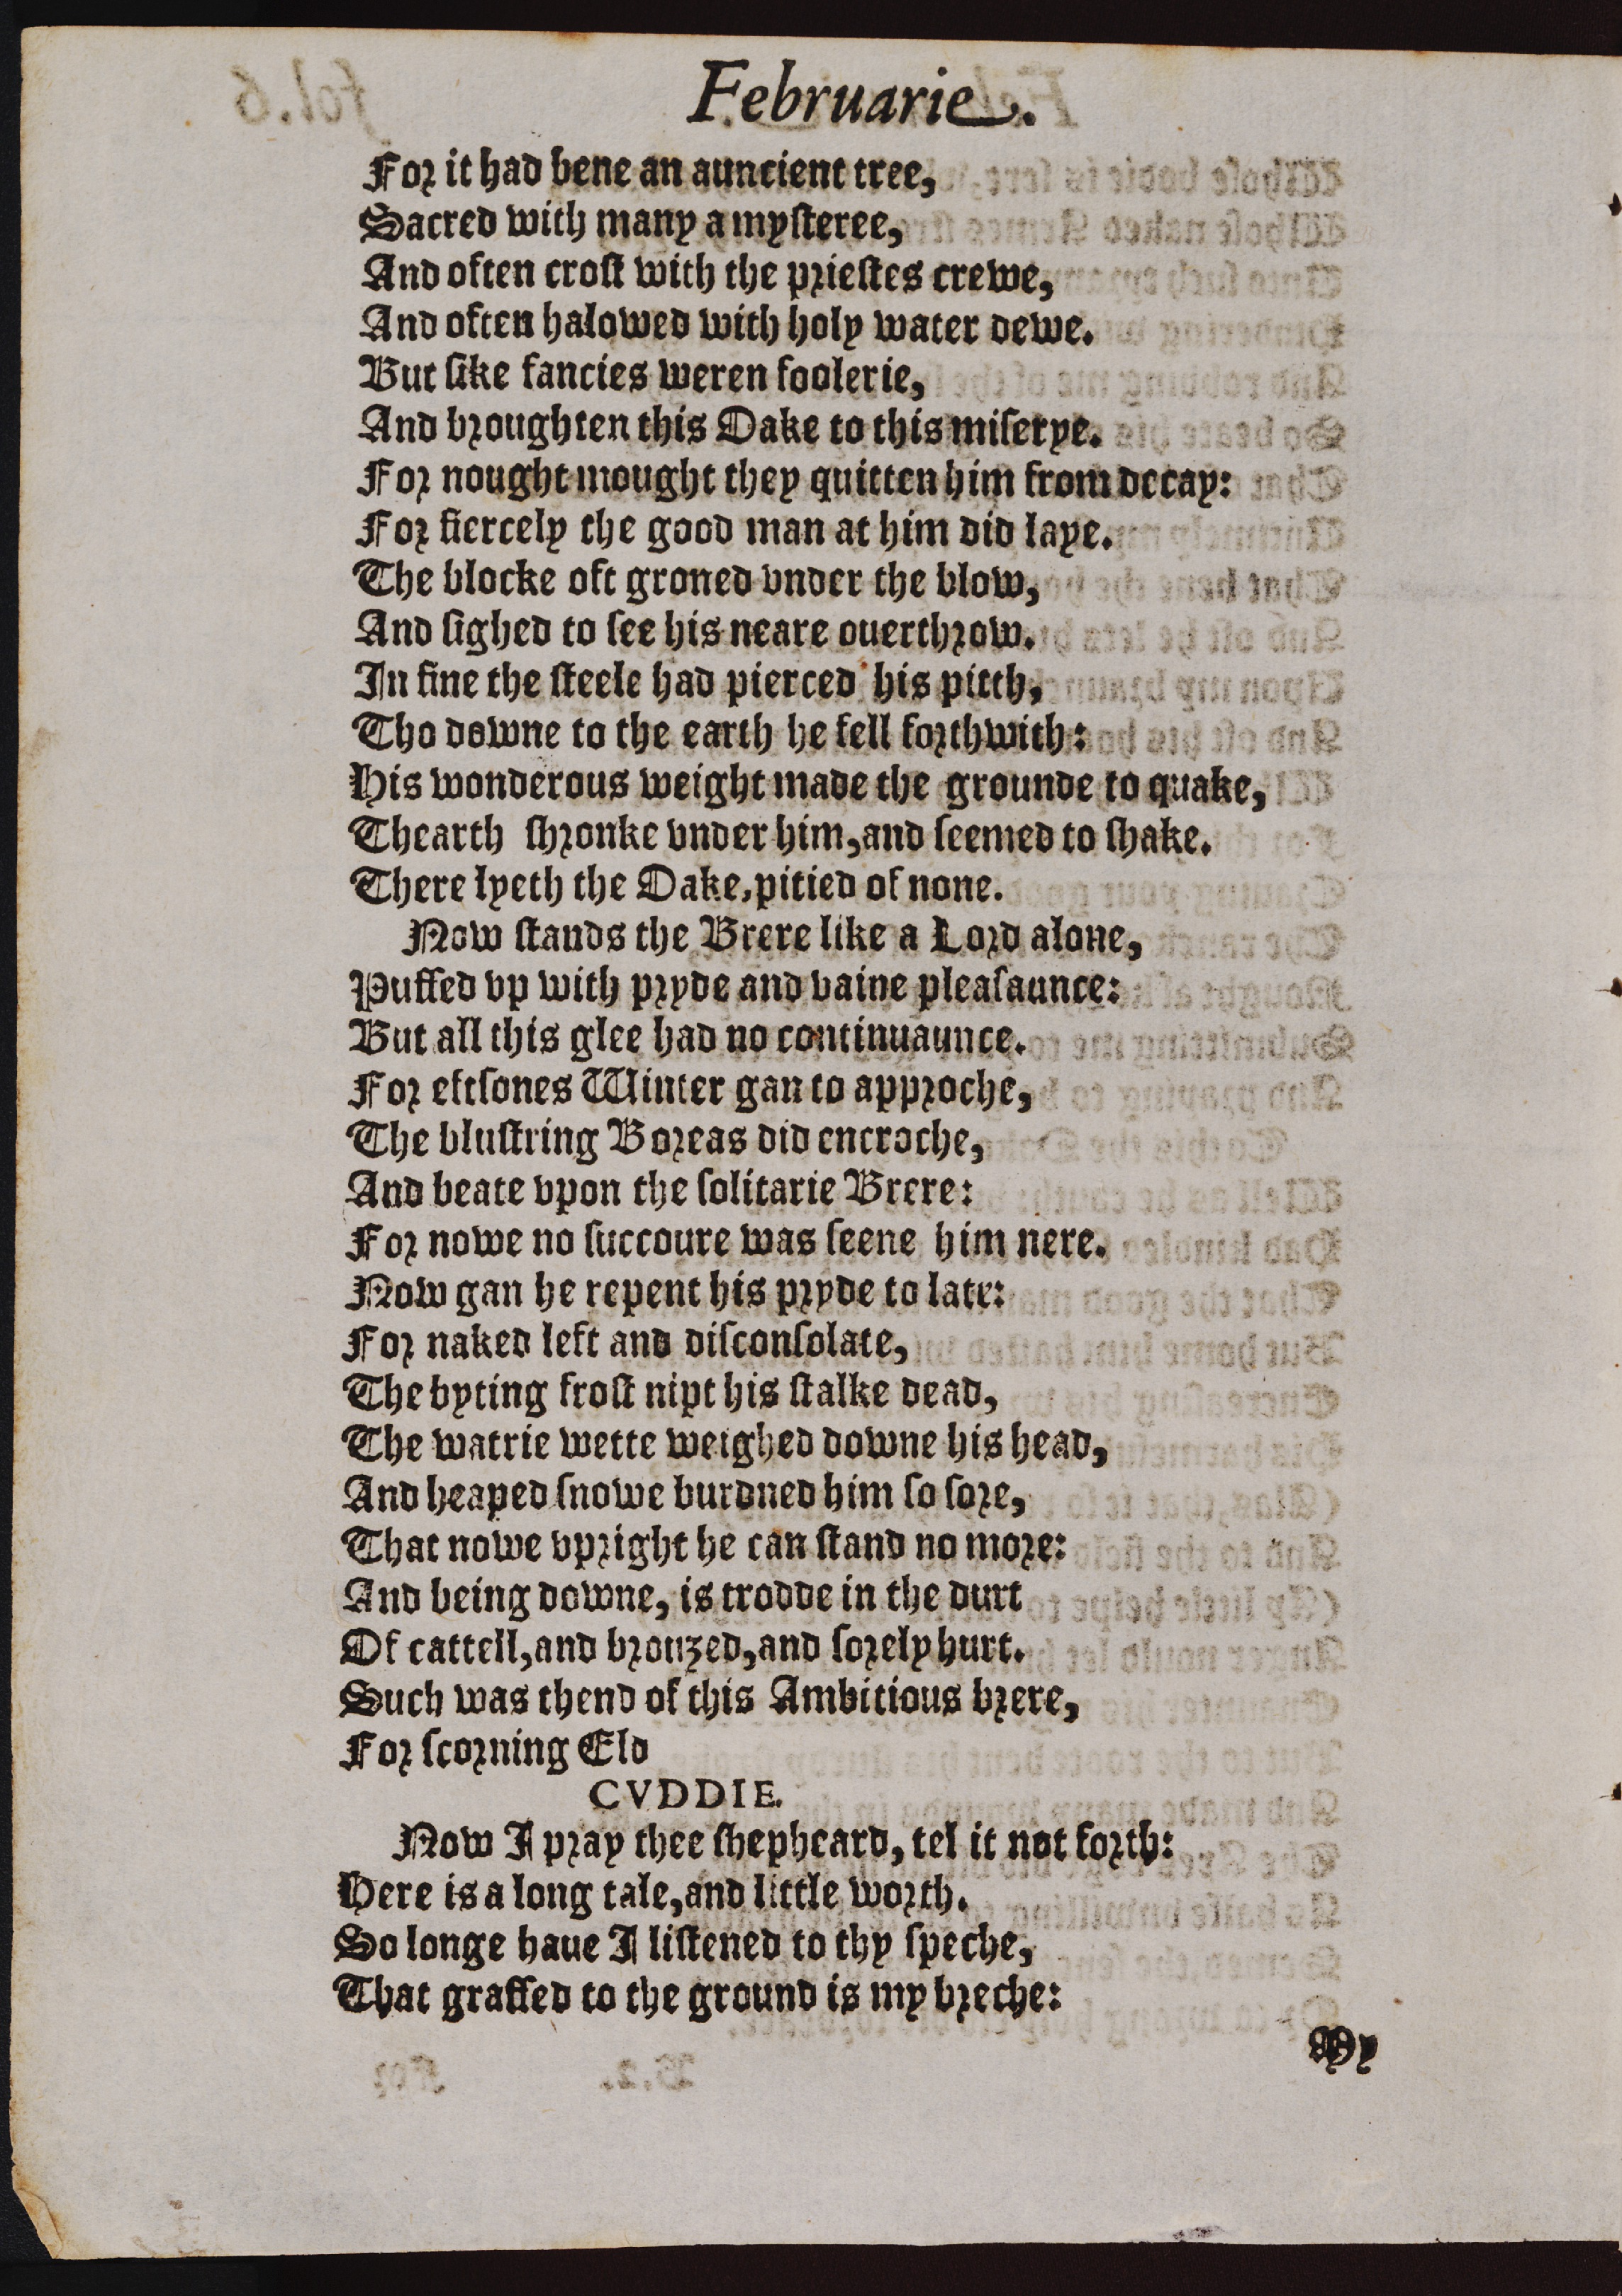 Februarie.
For it had bene an auncient tree,
Sacred with many a myſteree,
And often croſt with the prieſtes crewe,
And often halowed with holy water dewe.
But ſike fancies weren foolerie,
And broughten this Oake to this miſerye.
For nought mought they quitten him from decay:
For fiercely the good man at him did laye.
The blocke oft groned vnder the blow,
And ſighed to ſee his neare ouerthrow.
In fine the ſteele had pierced his pitth,
Tho downe to the earth he fell forthwith:
His wonderous weight made the grounde to quake,
Thearth ſhronke vnder him,and ſeemed to ſhake.
There lyeth the Oake,pitied of none.
Now ſtands the Brere like a Lord alone,
Puffed vp with pryde and vaine pleaſaunce:
But all this glee had no continuaunce.
For eftſones Winter gan to approche,
The bluſtring Boreas did encroche,
And beate vpon the ſolitarie Brere:
For nowe no ſuccoure was ſeene him nere.
Now gan he repent his pryde to late:
For naked left and diſconſolate,
The byting froſt nipt his ſtalke dead,
The watrie wette weighed downe his head,
And heaped ſnowe burdned him ſo ſore,
That nowe vpright he can ſtand no more:
And being downe, is trodde in the durt
Of cattell,and brouzed,and ſorely hurt.
Such was thend of this Ambitious brere,
For ſcorning Eld
CVDDIE.
Now I pray thee ſhepheard, tel it not forth:
Here is a long tale,and little worth.
So longe haue I liſtened to thy ſpeche,
That graffed to the ground is my breche:
My